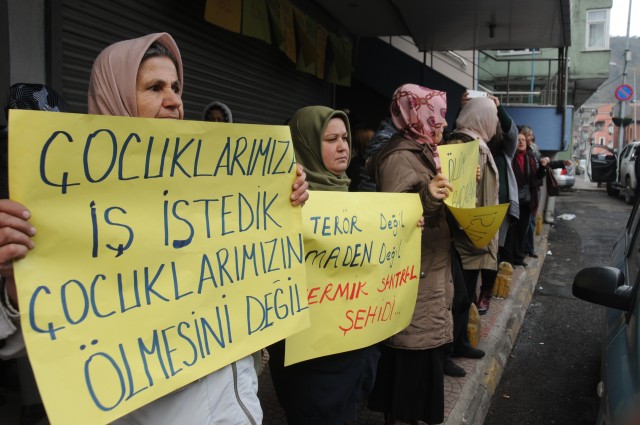 ÇOCUKLARIMIZA
İŞ İSTEDİK
ÇOCUKLARIMIZIN
ÖLMESİNİ DEĞİL
TERÖR DEĞİL
MADEN DEĞİL
TERMİK SANTRAL
ŞEHİDİ...